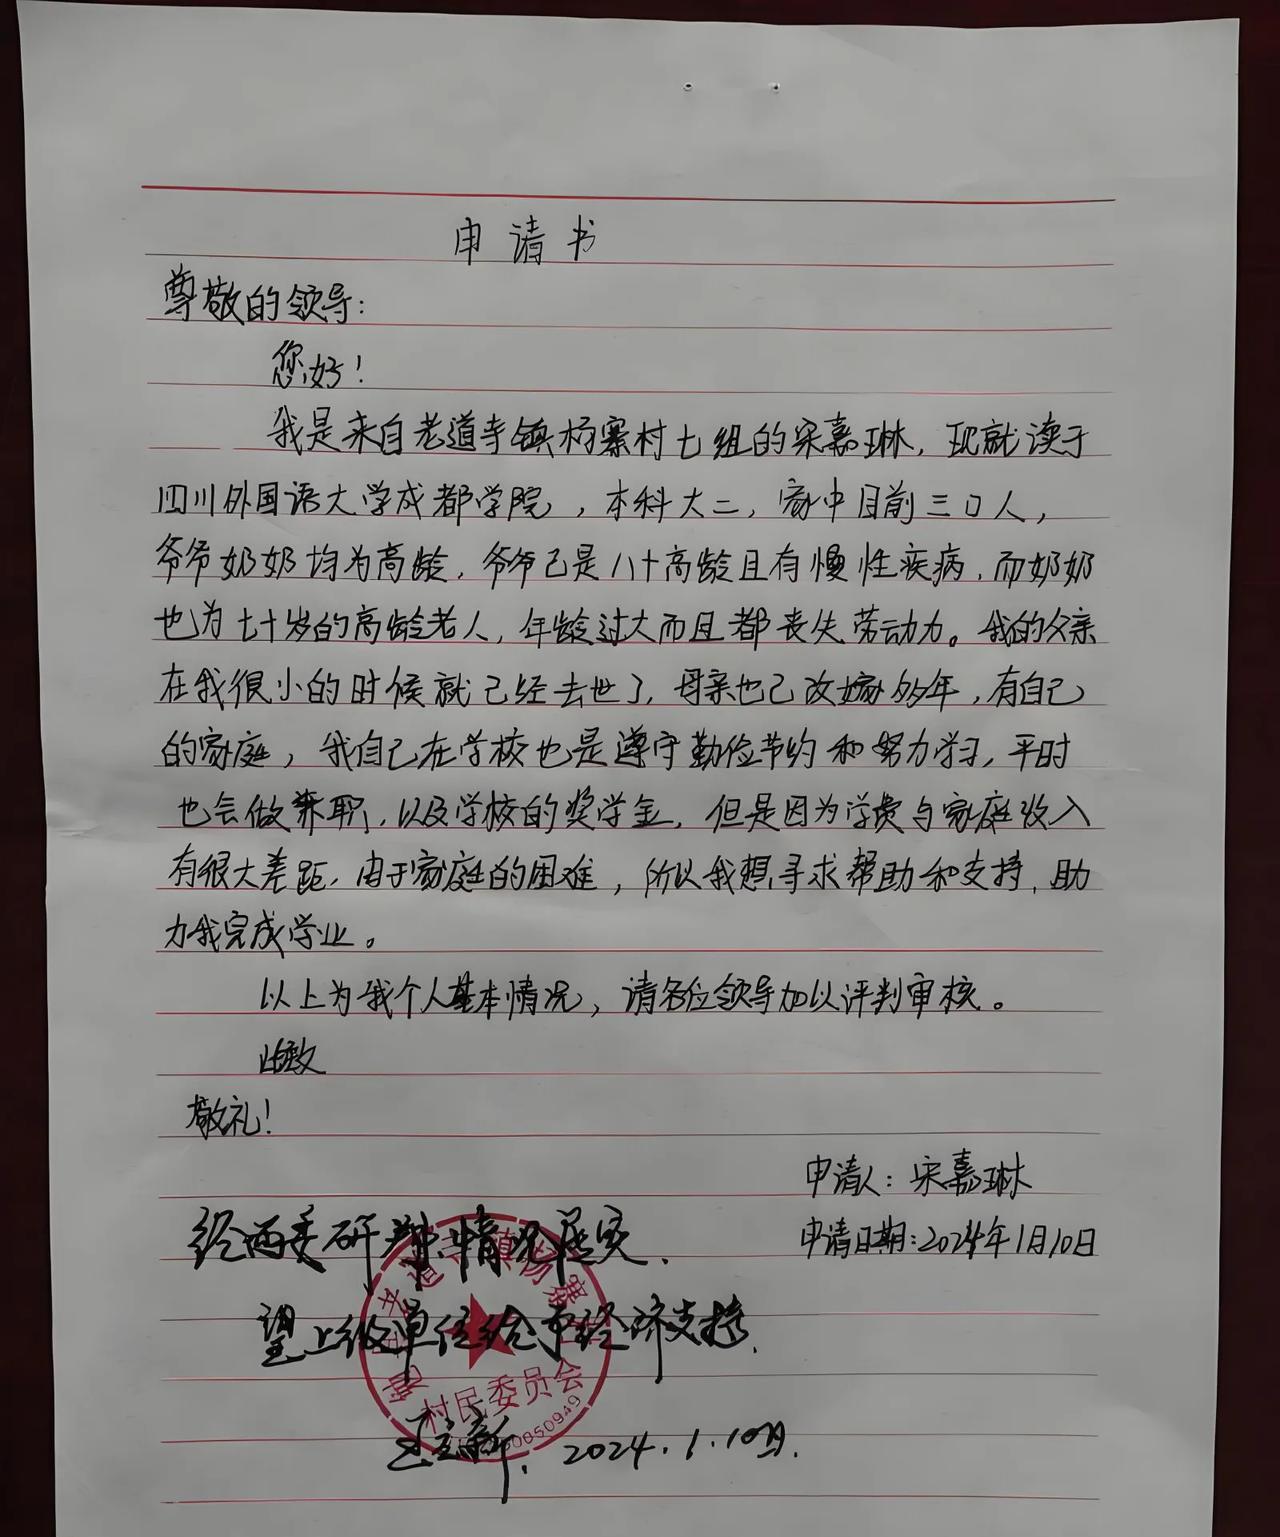 申请书
尊敬的领导:
您好!
我是来自老道寺镇杨寨村七组的宋嘉琳,现就读于
四川外国语大学成都学院,本科大二,家中目前三口人,
爷爷奶奶均为高龄,爷爷已是八十高龄且有慢性疾病,而奶奶
也为七十岁的高龄老人,年龄过大而且都丧失劳动力。我的父亲
在我很小的时候就已经去世了,母亲也已改嫁多年,有自己
的家庭,我自己在学校也是遵守勤俭节约和努力学习,平时
也会做兼职,以及学校的奖学金,但是因为学费与家庭收入
有很大差距,由于家庭的困难,所以我想寻求帮助和支持,助
力我完成学业。
以上为我个人基本情况,请各位领导加以评判审核。
此致
敬礼!
申请人:宋嘉琳
申请日期:2024年1月10日
经两委研判,情况属实.
望上级单位给予经济支持.
老道寺镇杨寨
村民委员会
0050949
新. 2024.1.10日.